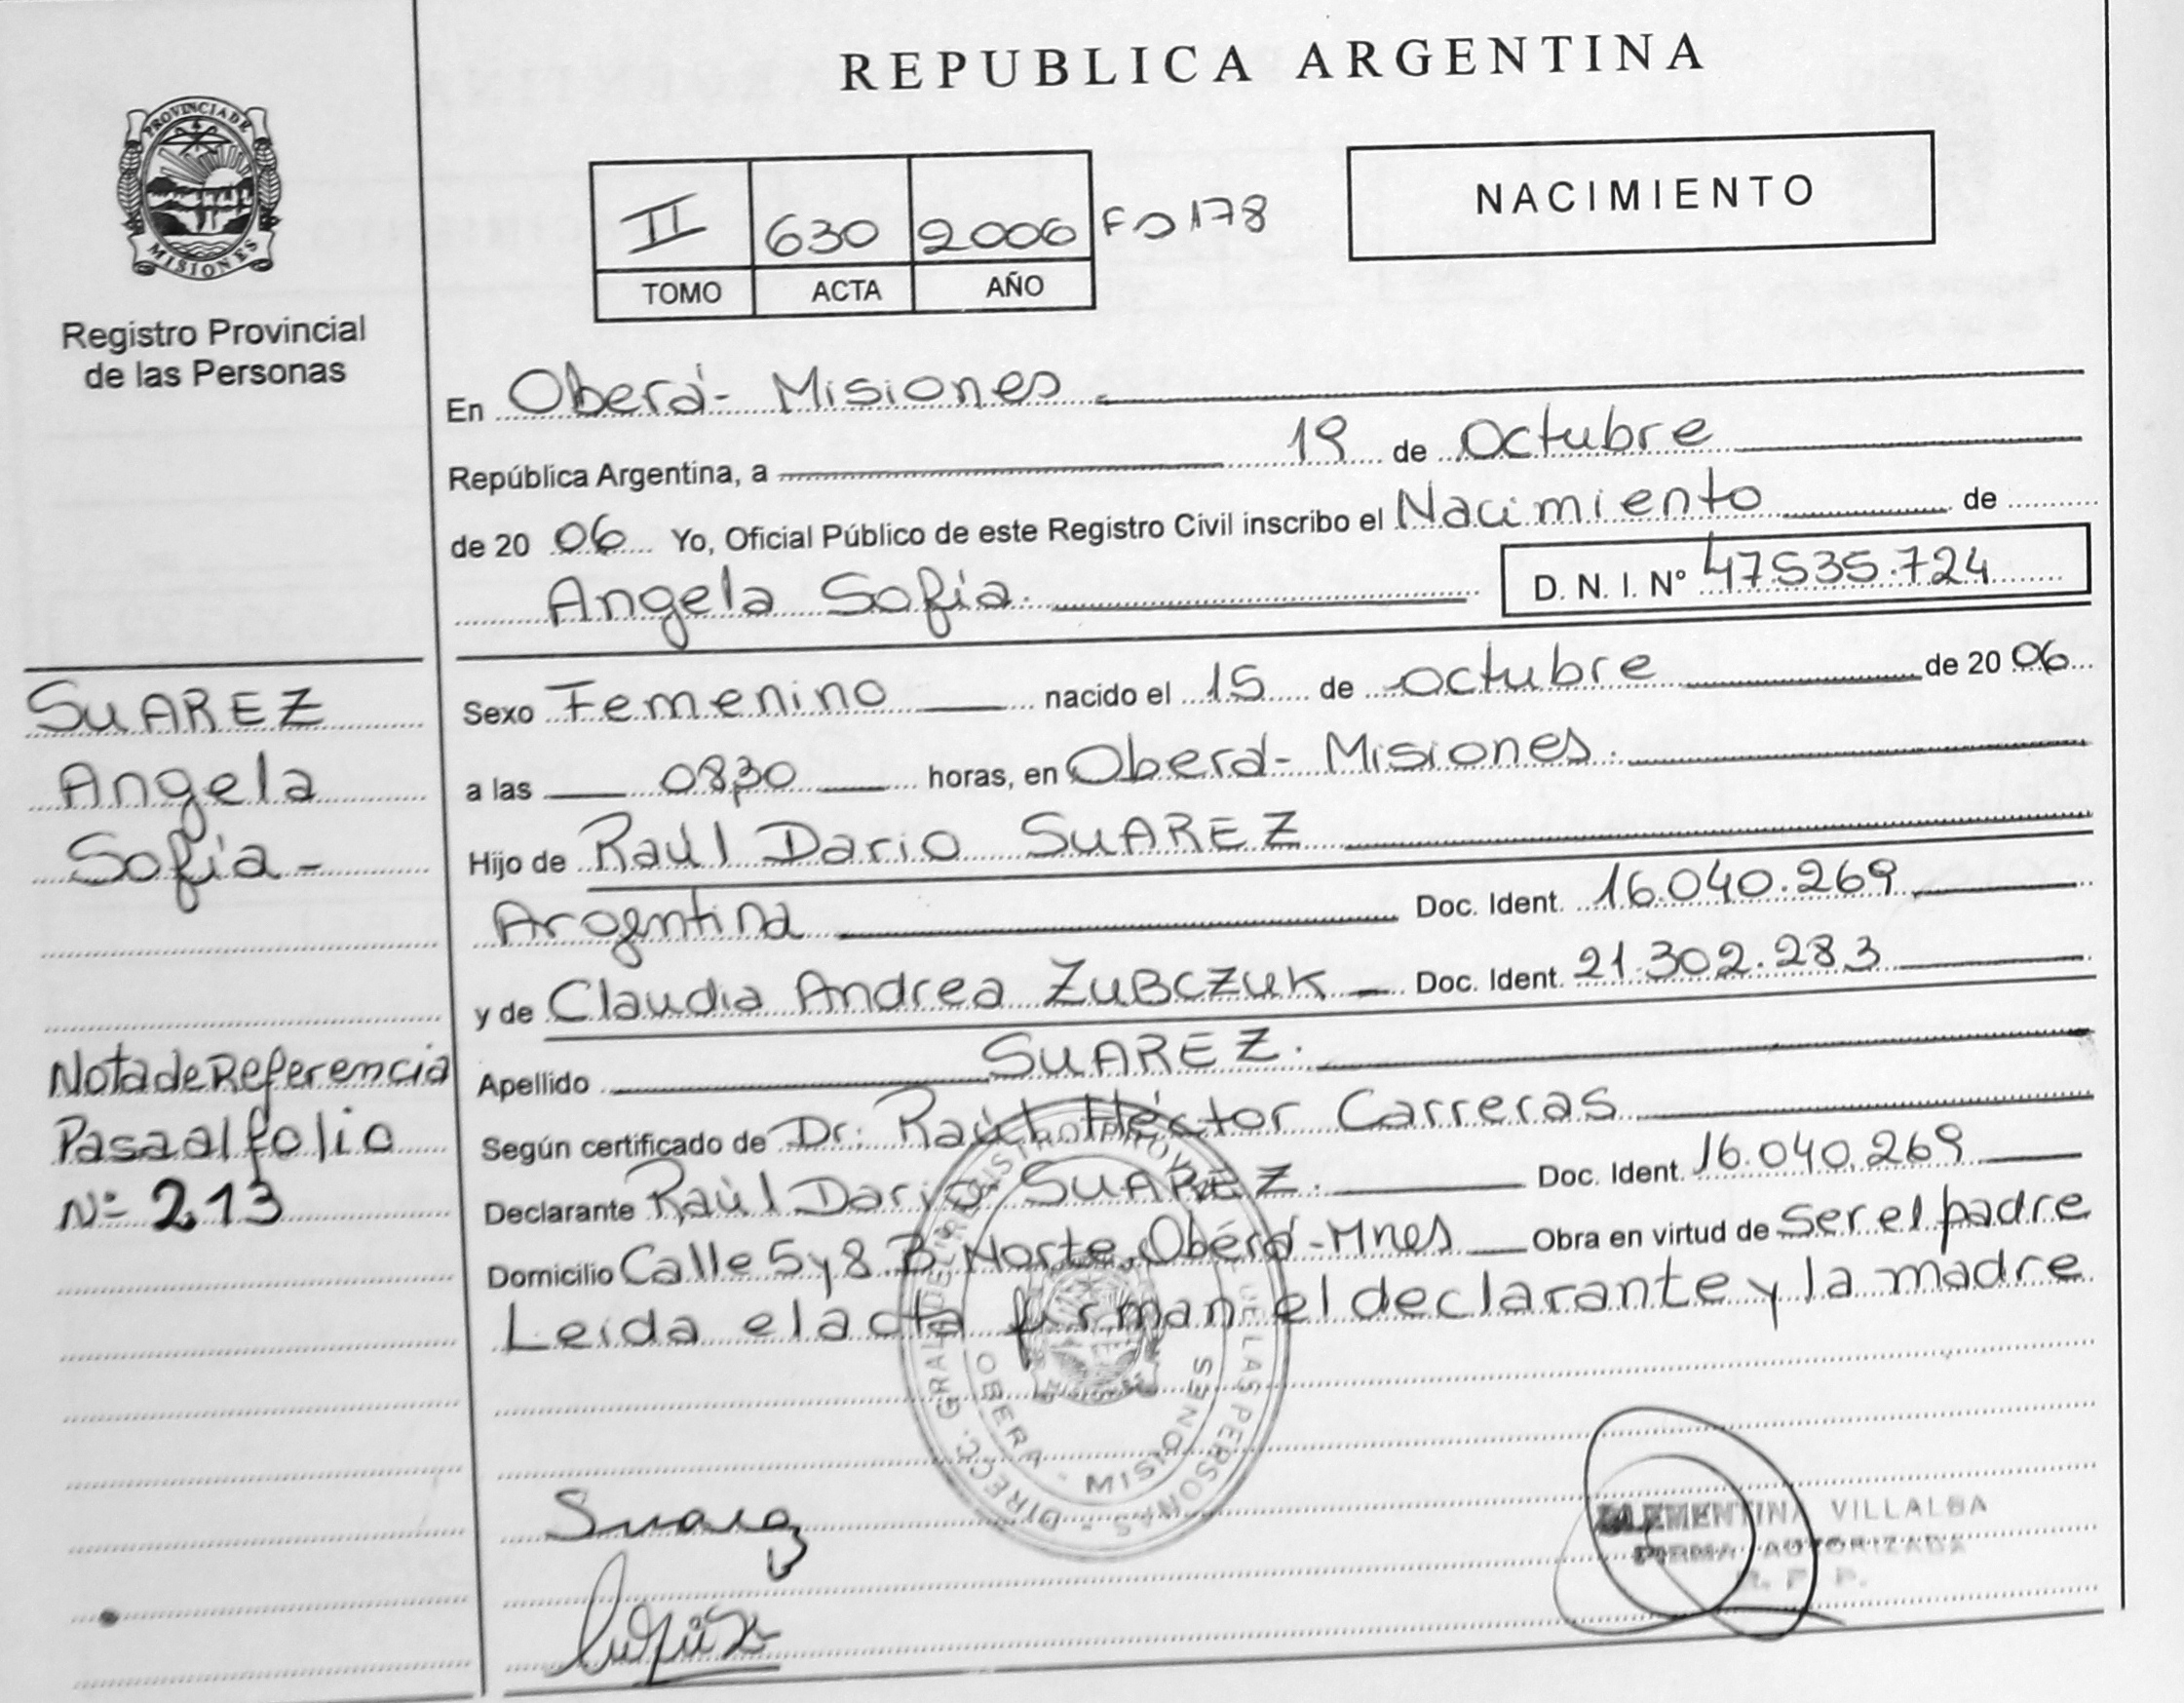 REPUBLICA ARGENTINA
PROVINCIA DE MISIONES
Registro Provincial
de las Personas
NACIMIENTO
II 630 2006 Fº 178
TOMO ACTA AÑO
En Oberá - Misiones
República Argentina, a 19 de Octubre
de 20 06 Yo, Oficial Público de este Registro Civil inscribo el Nacimiento de
Angela Sofía. D. N. I. Nº 47.535.724
SUAREZ
Angela
Sofía -
Sexo Femenino nacido el 15 de octubre de 20 06
a las 08,30 horas, en Oberá - Misiones.
Hijo de Raúl Dario SUAREZ
Argentina Doc. Ident. 16.040.269
y de Claudia Andrea ZUBCZUK - Doc. Ident. 21.302.283
Apellido SUAREZ.
Según certificado de Dr. Raúl Héctor Carreras
Declarante Raúl Dario SUAREZ. Doc. Ident. 16.040.269
Domicilio Calle 5 y 8 B Norte. Oberá - Mnes Obra en virtud de Ser el padre
Leída el acta firman el declarante y la madre
Nota de Referencia
Pasa al folio
Nº 213
DIRECC. GRAL. DEL REGISTRO PROV. DE LAS PERSONAS
OBERA - MISIONES
Suarez
CLEMENTINA VILLALBA
FIRMA AUTORIZADA
R. P. P.